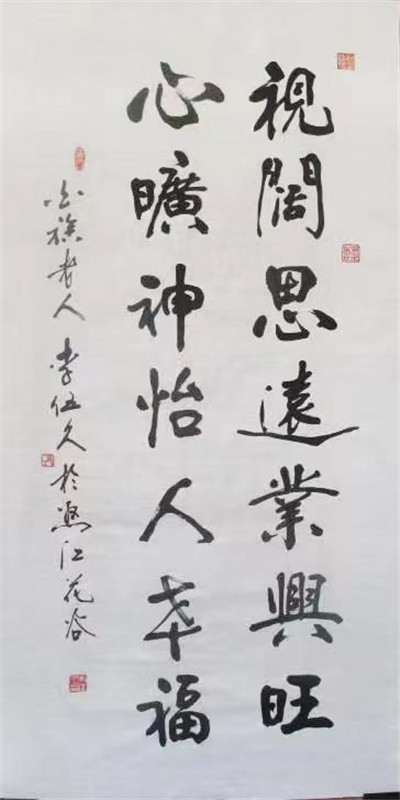 視闊思遠業興旺
心曠神怡人幸福
白族老人李伍久於怒江花谷